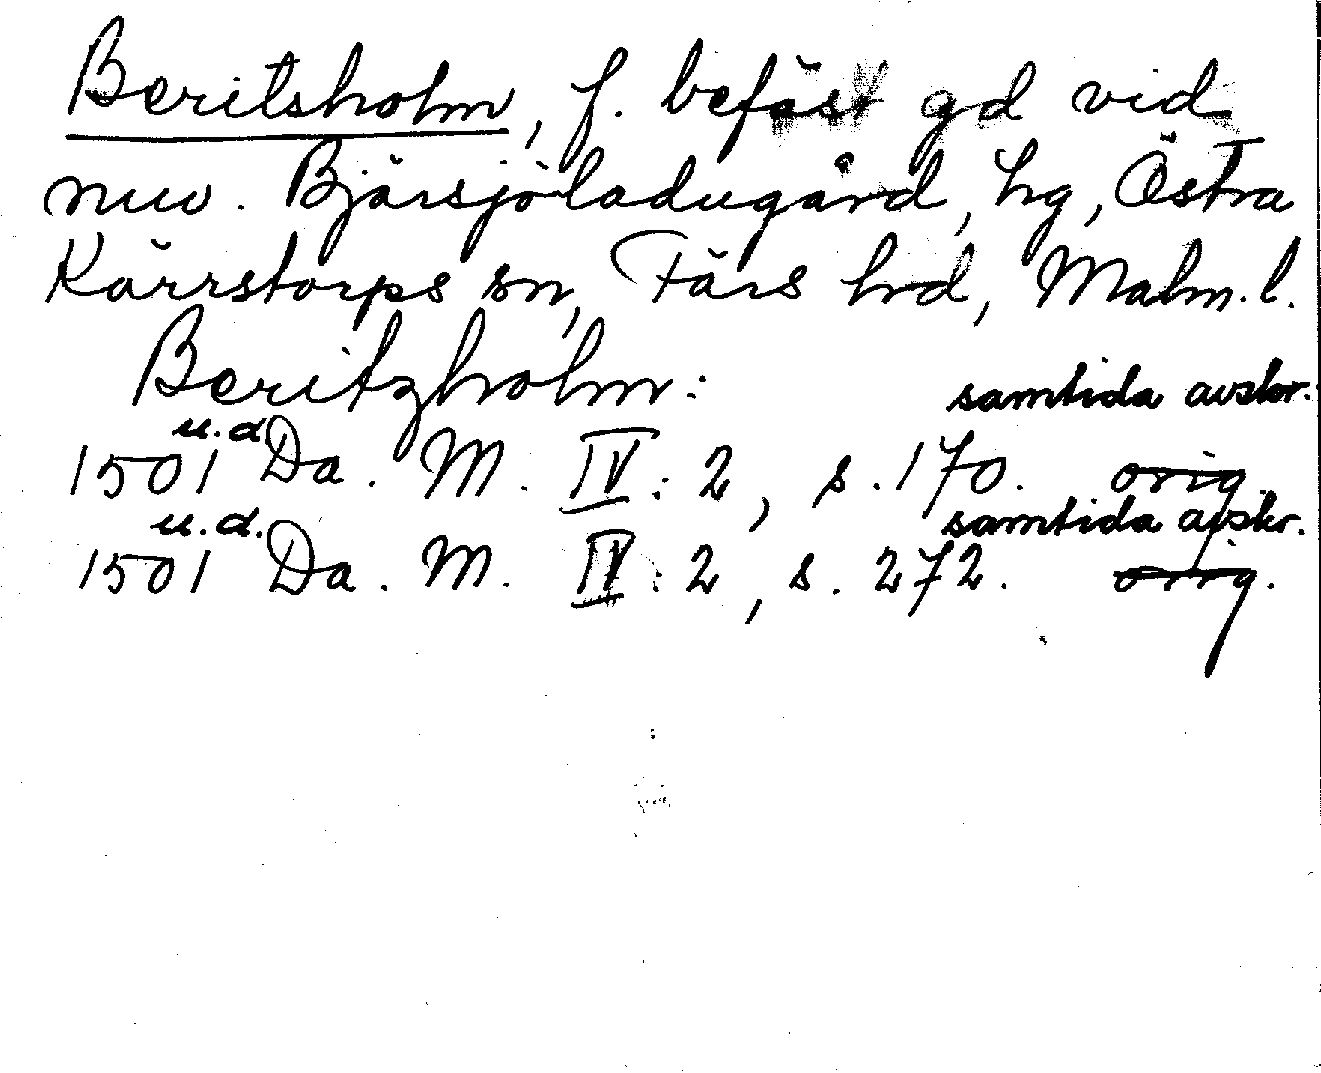 Beritsholm, f. befäst gd vid
nuv. Bjärsjöladugård, hg, Östra
Kärrstorps sn, Färs hd, Malm. l.
Beritzholm:
samtida avskr.
u.d.
1501 Da. M. IV: 2, s. 170. orig.
u.d. samtida avskr.
1501 Da. M. IV: 2, s. 272. orig.